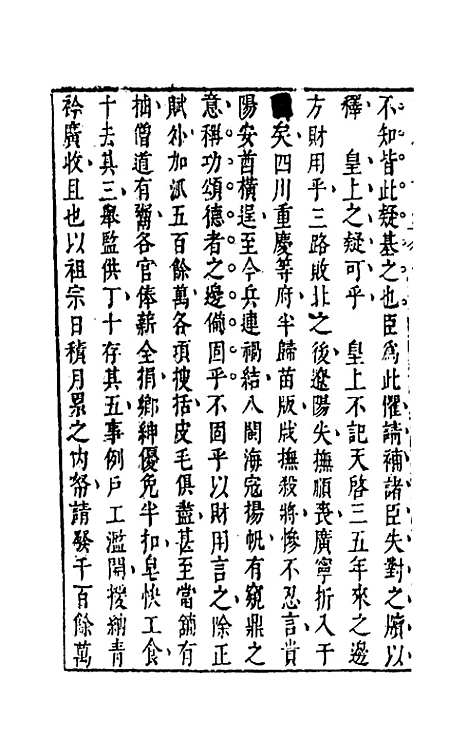 不知皆此疑基之也臣爲此懼請補諸臣失對之牘以
釋　皇上之疑可乎　皇上不記天啓三五年來之邊
方財用乎三路敗北之後遼陽失撫順喪廣寧折入于
矣四川重慶等府半歸苗版戕撫殺將慘不忍言貴
陽安酋橫逞至今兵連禍結八閩海寇揚帆有窺鼎之
意稱功頌德者之邊備固乎不固乎以財用言之除正
賦外加派五百餘萬各項搜括皮毛俱盡甚至當舖有
抽僧道有鬻各官俸薪全捐鄉紳優免半扣皂快工食
十去其三舉監供丁十存其五事例戶工濫開援納青
衿廣收且也以祖宗日積月累之內帑請發千百餘萬